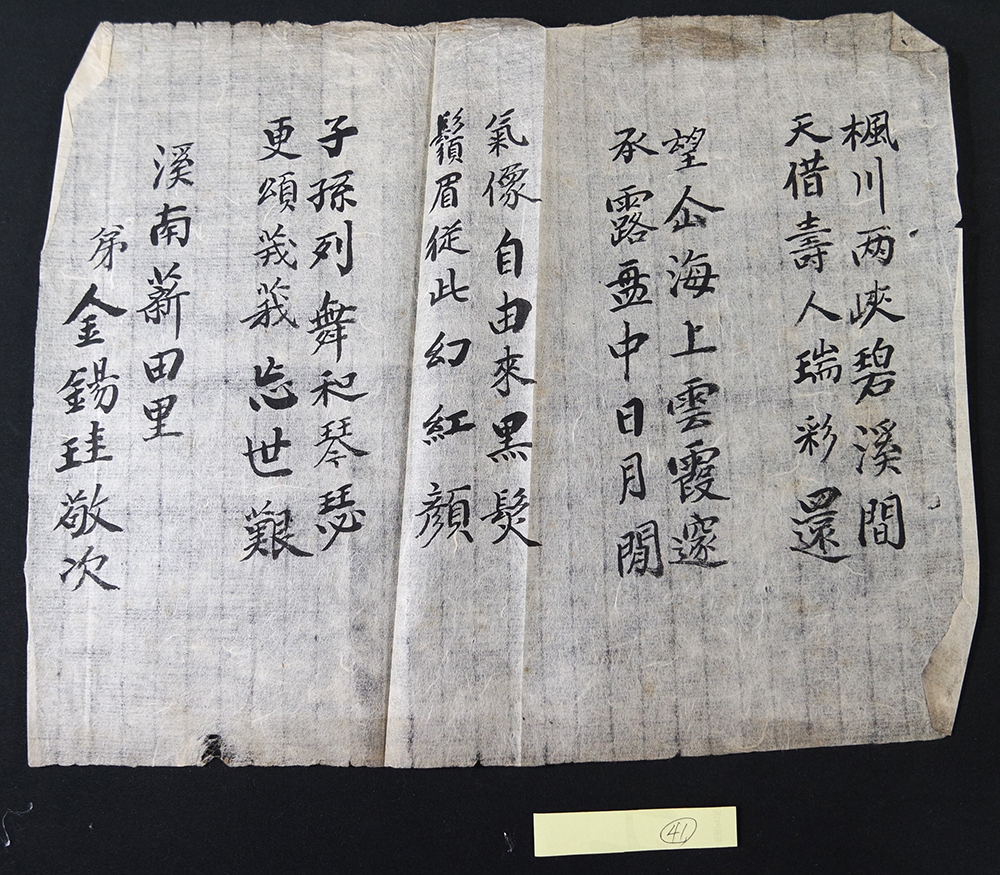 楓川两峽碧溪間
天借壽人瑞彩還
望仚海上雲霞邃
承露盃中日月閒
氣像自由來黑髮
鬚眉従此幻紅顔
子孫列舞和琴瑟
更頌莪莪忘世艱
溪南薪田里
苐金錫珪敬次
41